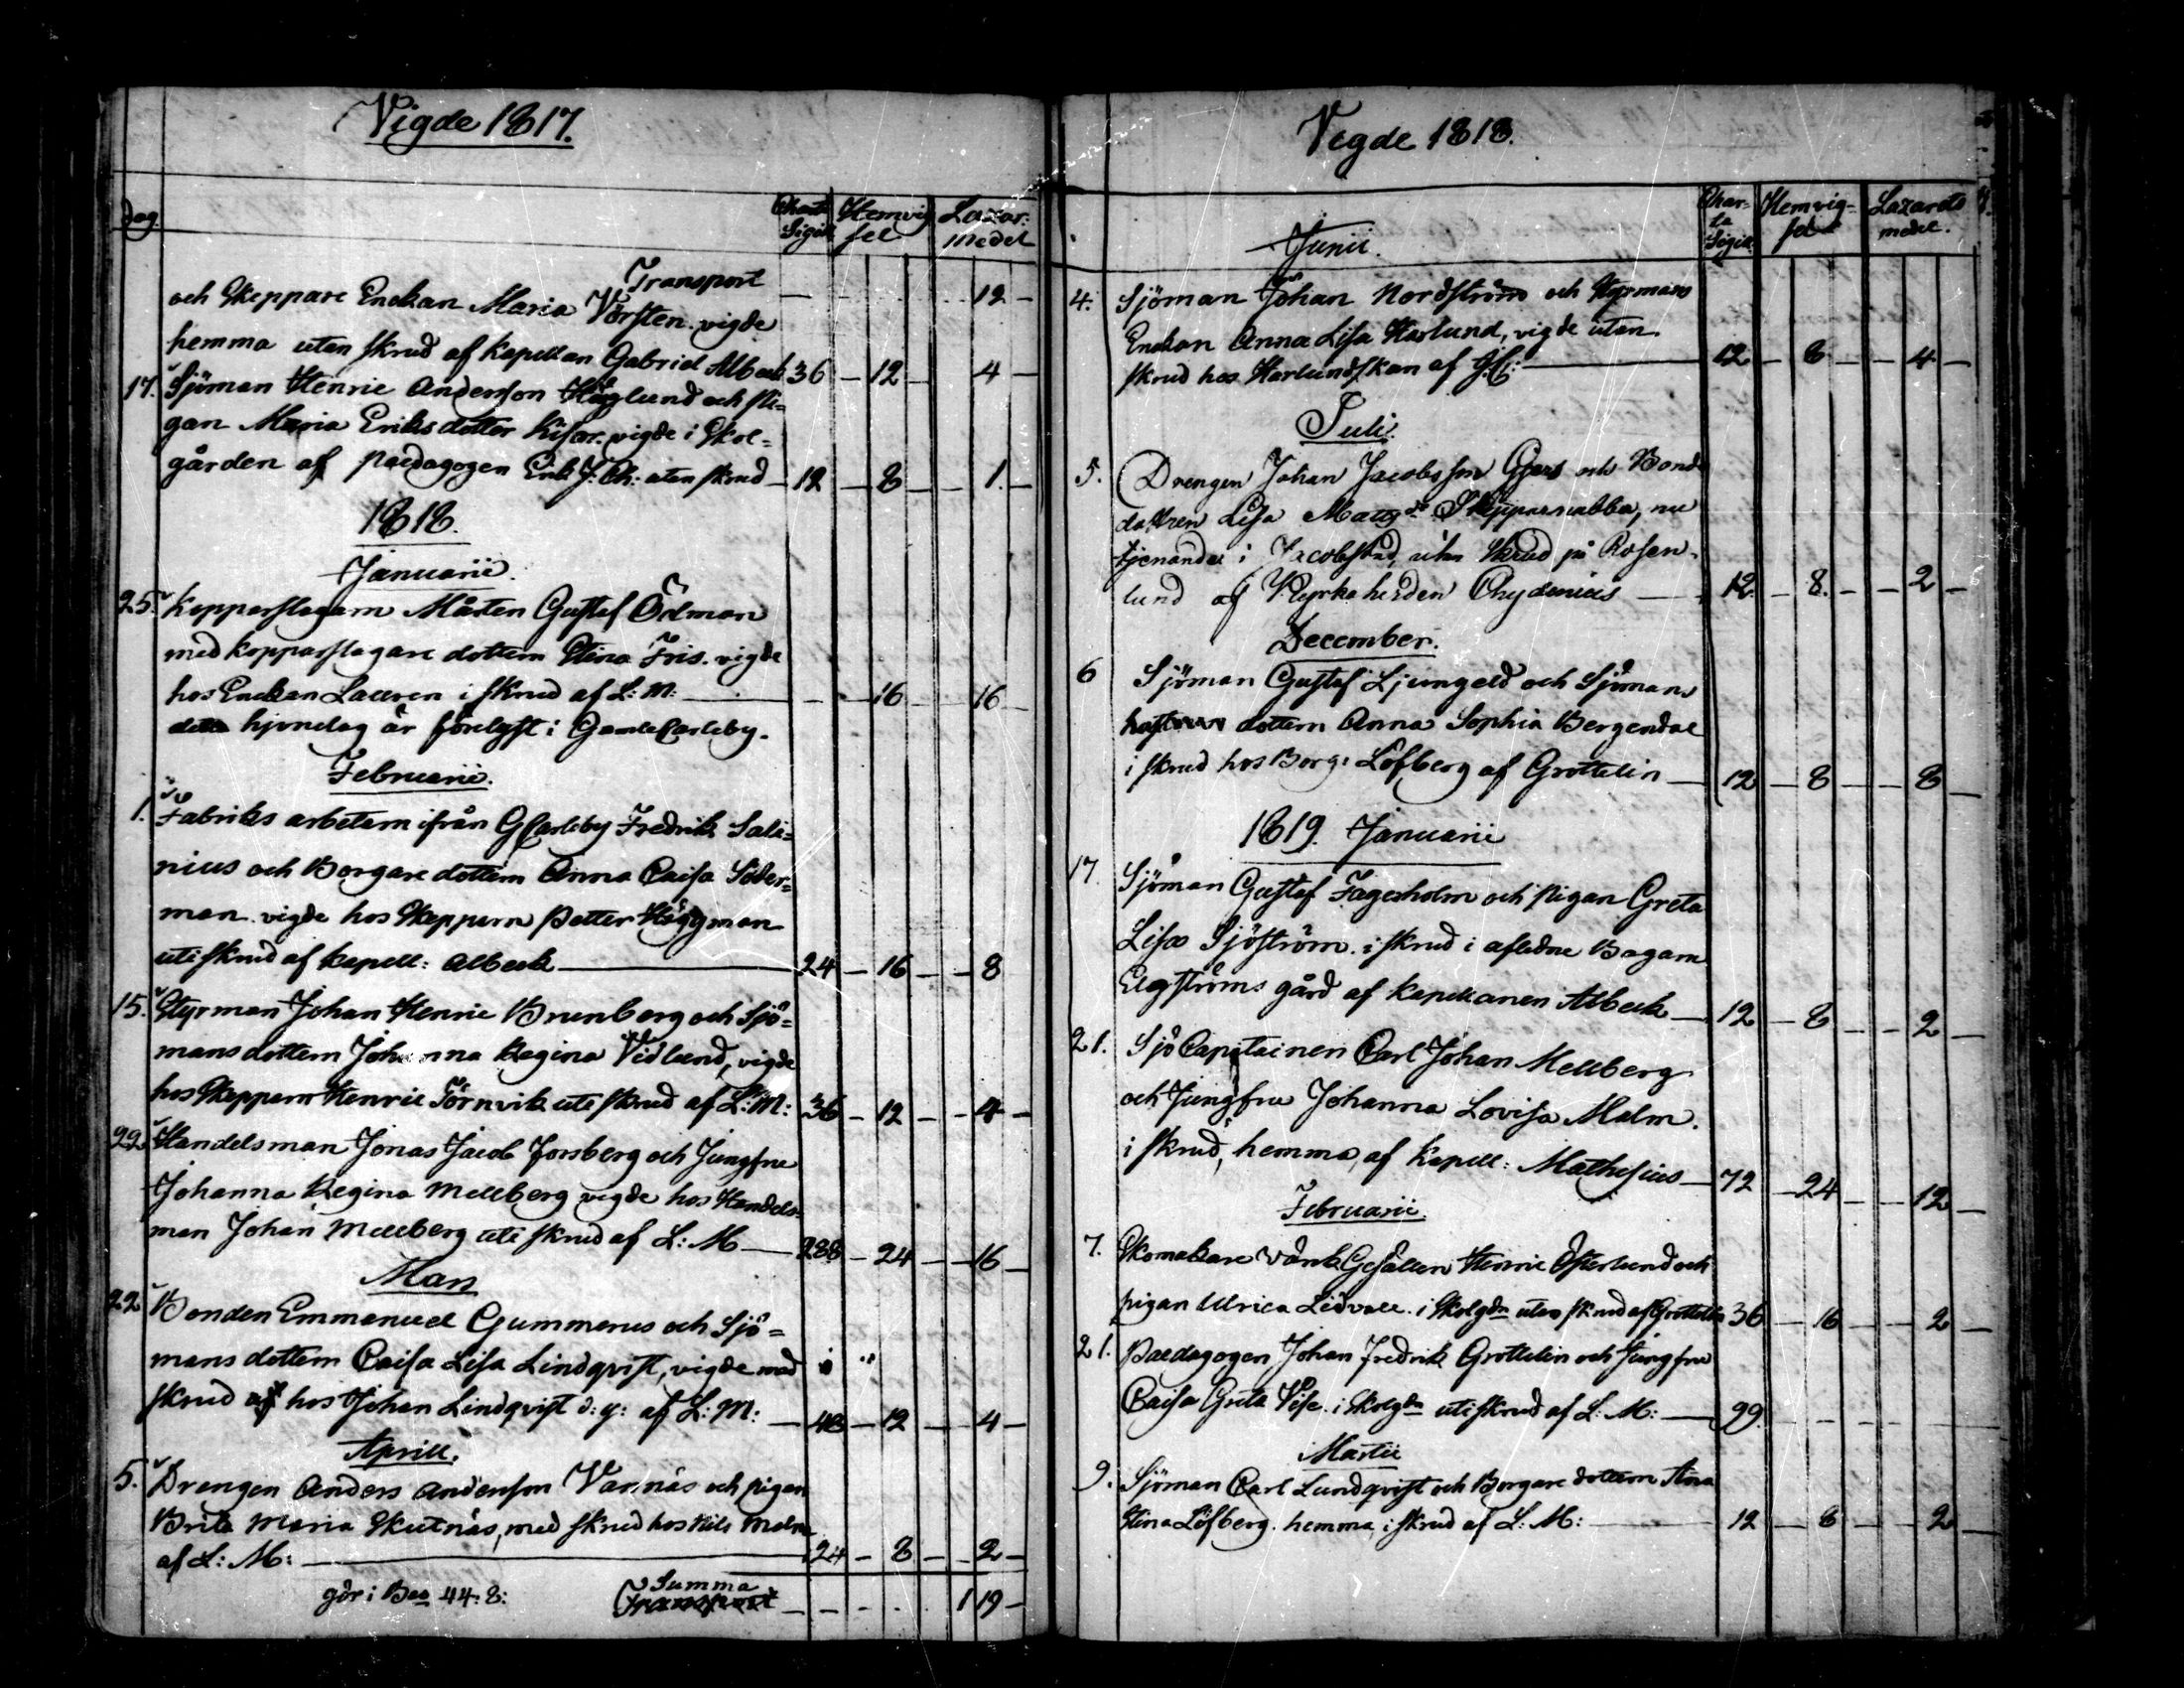 Vigde 1817.
dag. Charta Sigill Hemvig sel Lazar: medel
Transport 12
och Skeppare Enckan Maria Vörsten. vigde
hemma utan skrud af Kapellan Gabriel Albeck 36 12 4
17. Sjöman Henric Andersson Höglund och pi=
gan Maria Eriksdotter Kisor. vigde i Skol=
gården af paedagogen Erik J: Ch: utan skrud 12 8 1.
1818.
Januarii.
25. Kopparslagarn Mårten Gustaf Ödman
med kopparslagare dottern Stina Fris. vigde
hos Enckan Lauren i skrud af L: M: 16 16
detta hjonelag är förelyst i GamleCarleby.
Februarii.
1. Fabriks arbetarn ifrån GCarleby Fredrik Sali=
nius och Borgare dottern Anna Caisa Söder=
man. vigde hos Skeppern Petter Häggman
uti skrud af kapell: Albeck 24 16 8
15. Styrman Johan Henric Brunberg och Sjö=
mans dottern Johanna Regina Vidlund, vigde
hos Skeppern Henric Törnvik uti skrud af L: M: 36 12 4
22. Handelsman Jonas Jacob Forsberg och Jungfru
Johanna Regina Mellberg vigde hos Handels=
man Johan Mellberg uti skrud af L: M 288 24 16
Mars
22. Bonden Emmanuel Gummerus och Sjö=
mans dottern Caisa Lisa Lindqvist, vigde med
skrud hos Johan Lindqvist d: y: af L: M: 48 12 4
Aprill.
5. Drengen Anders Andersson Varnäs och pigan
Brita Maria Skutnäs, med skrud hos Nils Malm
af L: M: 24 8 2
gör i Bco 44: 8: Summa
Transport 1 19
Vigde 1818.
Char-
ta
Sigill. Hemvig-
sel Lazarets
medel.
Junii.
4. Sjöman Johan Nordström och Styrmans
Enckan Anna Lisa Harlund, vigde utan
skrud hos Harlundskan af 12 8 4
Juli.
5. Drengen Johan Jacobsson Gjers och Bond
dottren Lisa Mattsdr Skepparnabba, nu
tjenande i Jacobstad, utan skrud på Rosen-
lund af Kyrkoherden Chydenius 12. 8. 2
December.
6 Sjöman Gustaf Ljungeld och Sjömans
dottern Anna Sophia Bergendal
i skrud hos Borg: Löfberg af Grottelin 12 8 8
1819. Januarii
17. Sjöman Gustaf Fagerholm och pigan Greta
Lisa Sjöström. i skrud i afledne Bagarn
Elgströms gård af kapellanen Albeck 12 8 2
21. Sjö Capitainen Carl Johan Mellberg
och Jungfru Johanna Lovisa Malm.
i skrud, hemma, af Kapell: Mathesius 72 24 12
Februarii.
7. Skomakare Gesällen Henric Österlund och
pigan Ulrica Lidvall. i Skolgdn utan skrud af Grottelin 36 16 2
21. Paedagogen Johan Fredrik Grottelin och Jungfru
Caisa Greta Vise. i Skolgdn uti skrud af L: M: 99.
Martii
9. Sjöman Carl Lundqvist och Borgare dottern Ana
Stina Löfberg. hemma, i skrud af L: M: 12 8 2